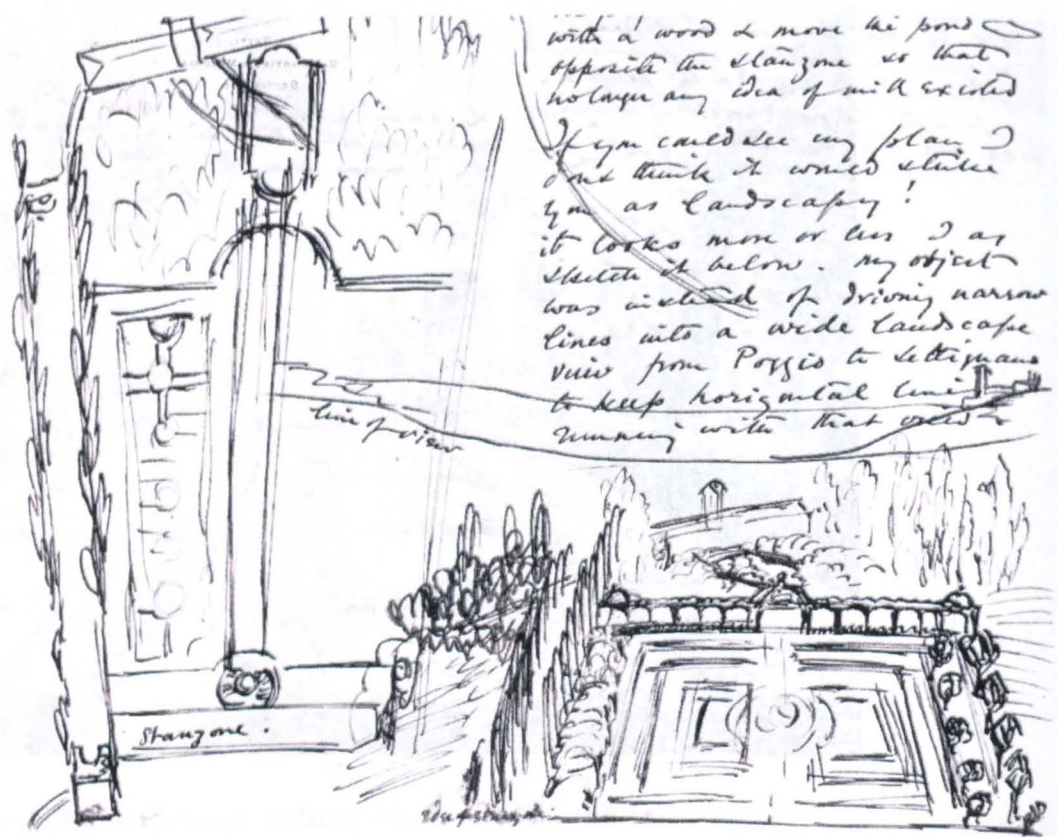 with a wood & move the pond
opposite the stanzone so that
no longer any idea of mill existed
If you could see my plan I
dont think it would strike
you as landscapey!
it looks more or less I as
sketch it below. my object
was instead of driving narrow
lines into a wide landscape
view from Poggio to Settignano
to keep horizontal lines
running with that
line of view
Stanzone